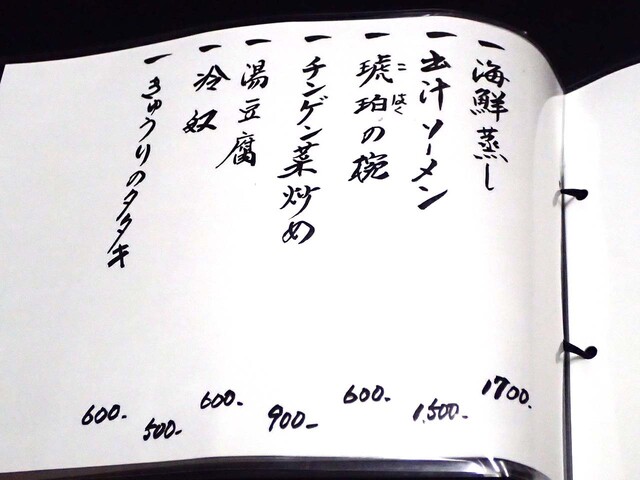 一 海鮮蒸し 1700.
一 出汁ソーメン 1,500-
一 琥珀の椀 600-
こはく
一 チンゲン菜炒め 900-
一 湯豆腐 600-
一 冷奴 500-
一 きゅうりのタタキ 600-